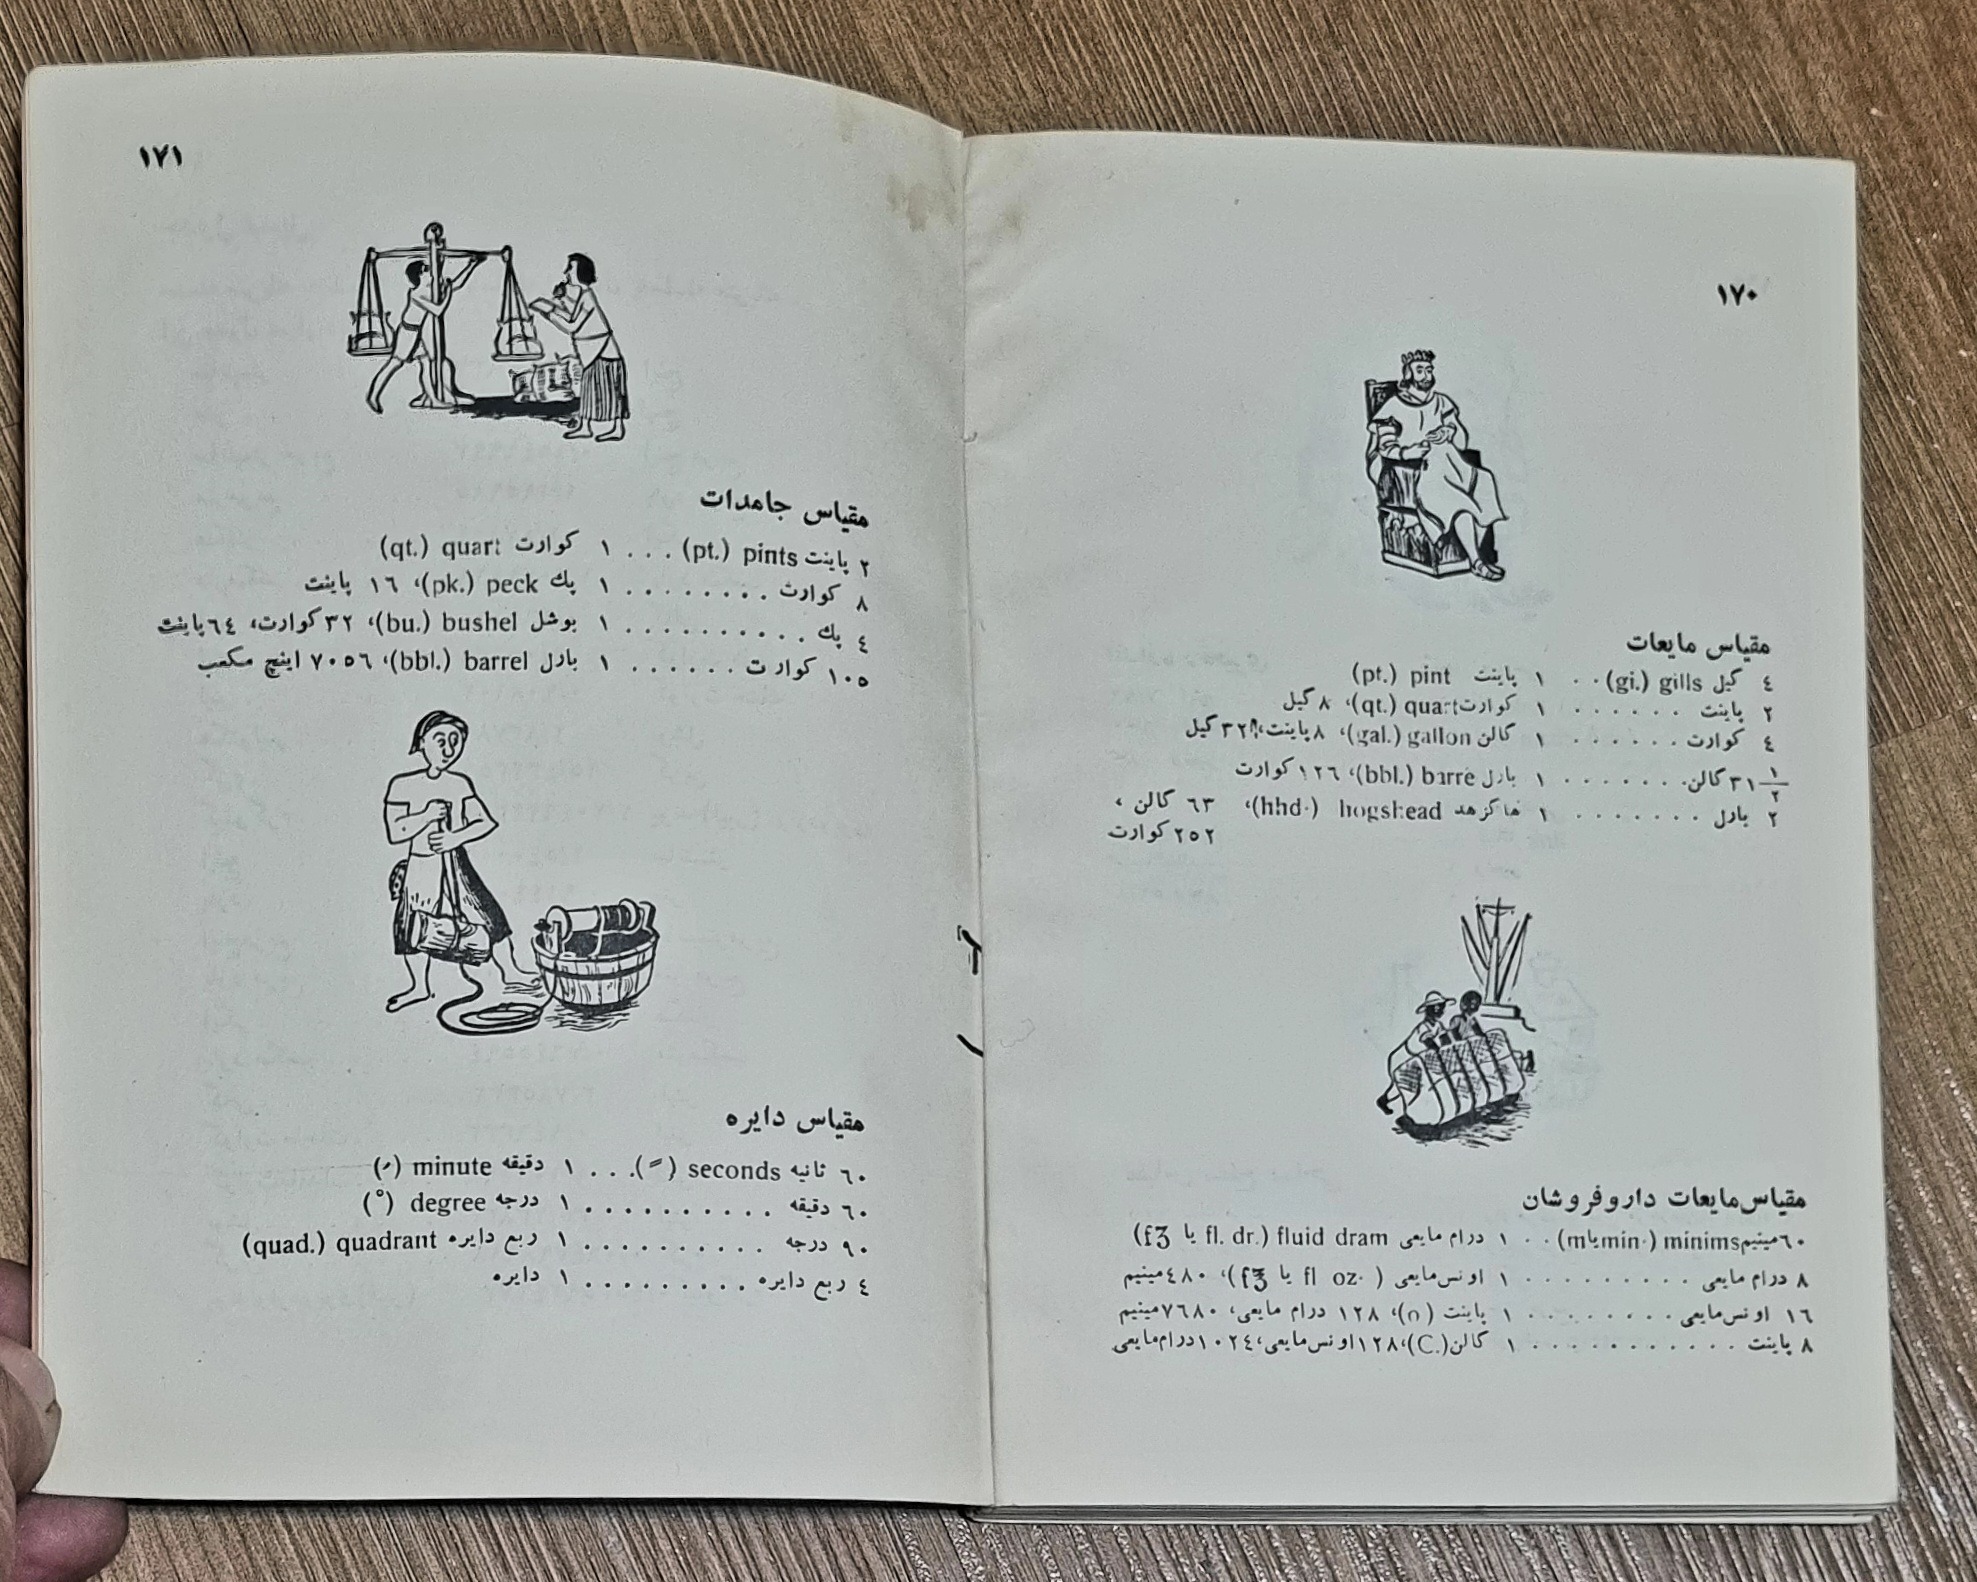 ۱۷۰
مقیاس مایعات
٤ گیل gills (gi.) . . ۱ پاینت pint (pt.)
۲ پاینت . . . . . . ۱ کوارت quart (qt.)، ۸ گیل
٤ کوارت . . . . . . ۱ گالن gallon (gal.)، ۸ پاینت، ۳۲ گیل
۳۱ ۱/۲ گالن . . . . . . . ۱ بارل barre (bbl.)، ۱۲٦ کوارت
۲ بارل . . . . . . . ۱ هاگزهد hogshead (hhd.)، ٦۳ گالن،
۲٥۲ کوارت
مقیاس مایعات داروفروشان
٦۰ مینیم minims (min. یا m) . . ۱ درام مایعی fluid dram (fl. dr. یا fʒ)
۸ درام مایعی . . . . . . . . . ۱ اونس مایعی (fl oz. یا f℥)، ٤۸۰ مینیم
۱٦ اونس مایعی . . . . . . . . . ۱ پاینت (o)، ۱۲۸ درام مایعی، ۷٦۸۰ مینیم
۸ پاینت . . . . . . . . . . . ۱ گالن (C.)، ۱۲۸ اونس مایعی، ۱۰۲٤ درام مایعی
۱۷۱
مقیاس جامدات
۲ پاینت pints (pt.) . . . ۱ کوارت quart (qt.)
۸ کوارت . . . . . . . . ۱ پك peck (pk.)، ۱٦ پاینت
٤ پك . . . . . . . . . . ۱ بوشل bushel (bu.)، ۳۲ کوارت، ٦٤ پاینت
۱۰٥ کوارت . . . . . . ۱ بارل barrel (bbl.)، ۷۰٥٦ اینچ مکعب
مقیاس دایره
٦۰ ثانیه seconds (″) . . . ۱ دقیقه minute (′)
٦۰ دقیقه . . . . . . . . . . ۱ درجه degree (°)
۹۰ درجه . . . . . . . . . . ۱ ربع دایره quadrant (quad.)
٤ ربع دایره . . . . . . . . . ۱ دایره